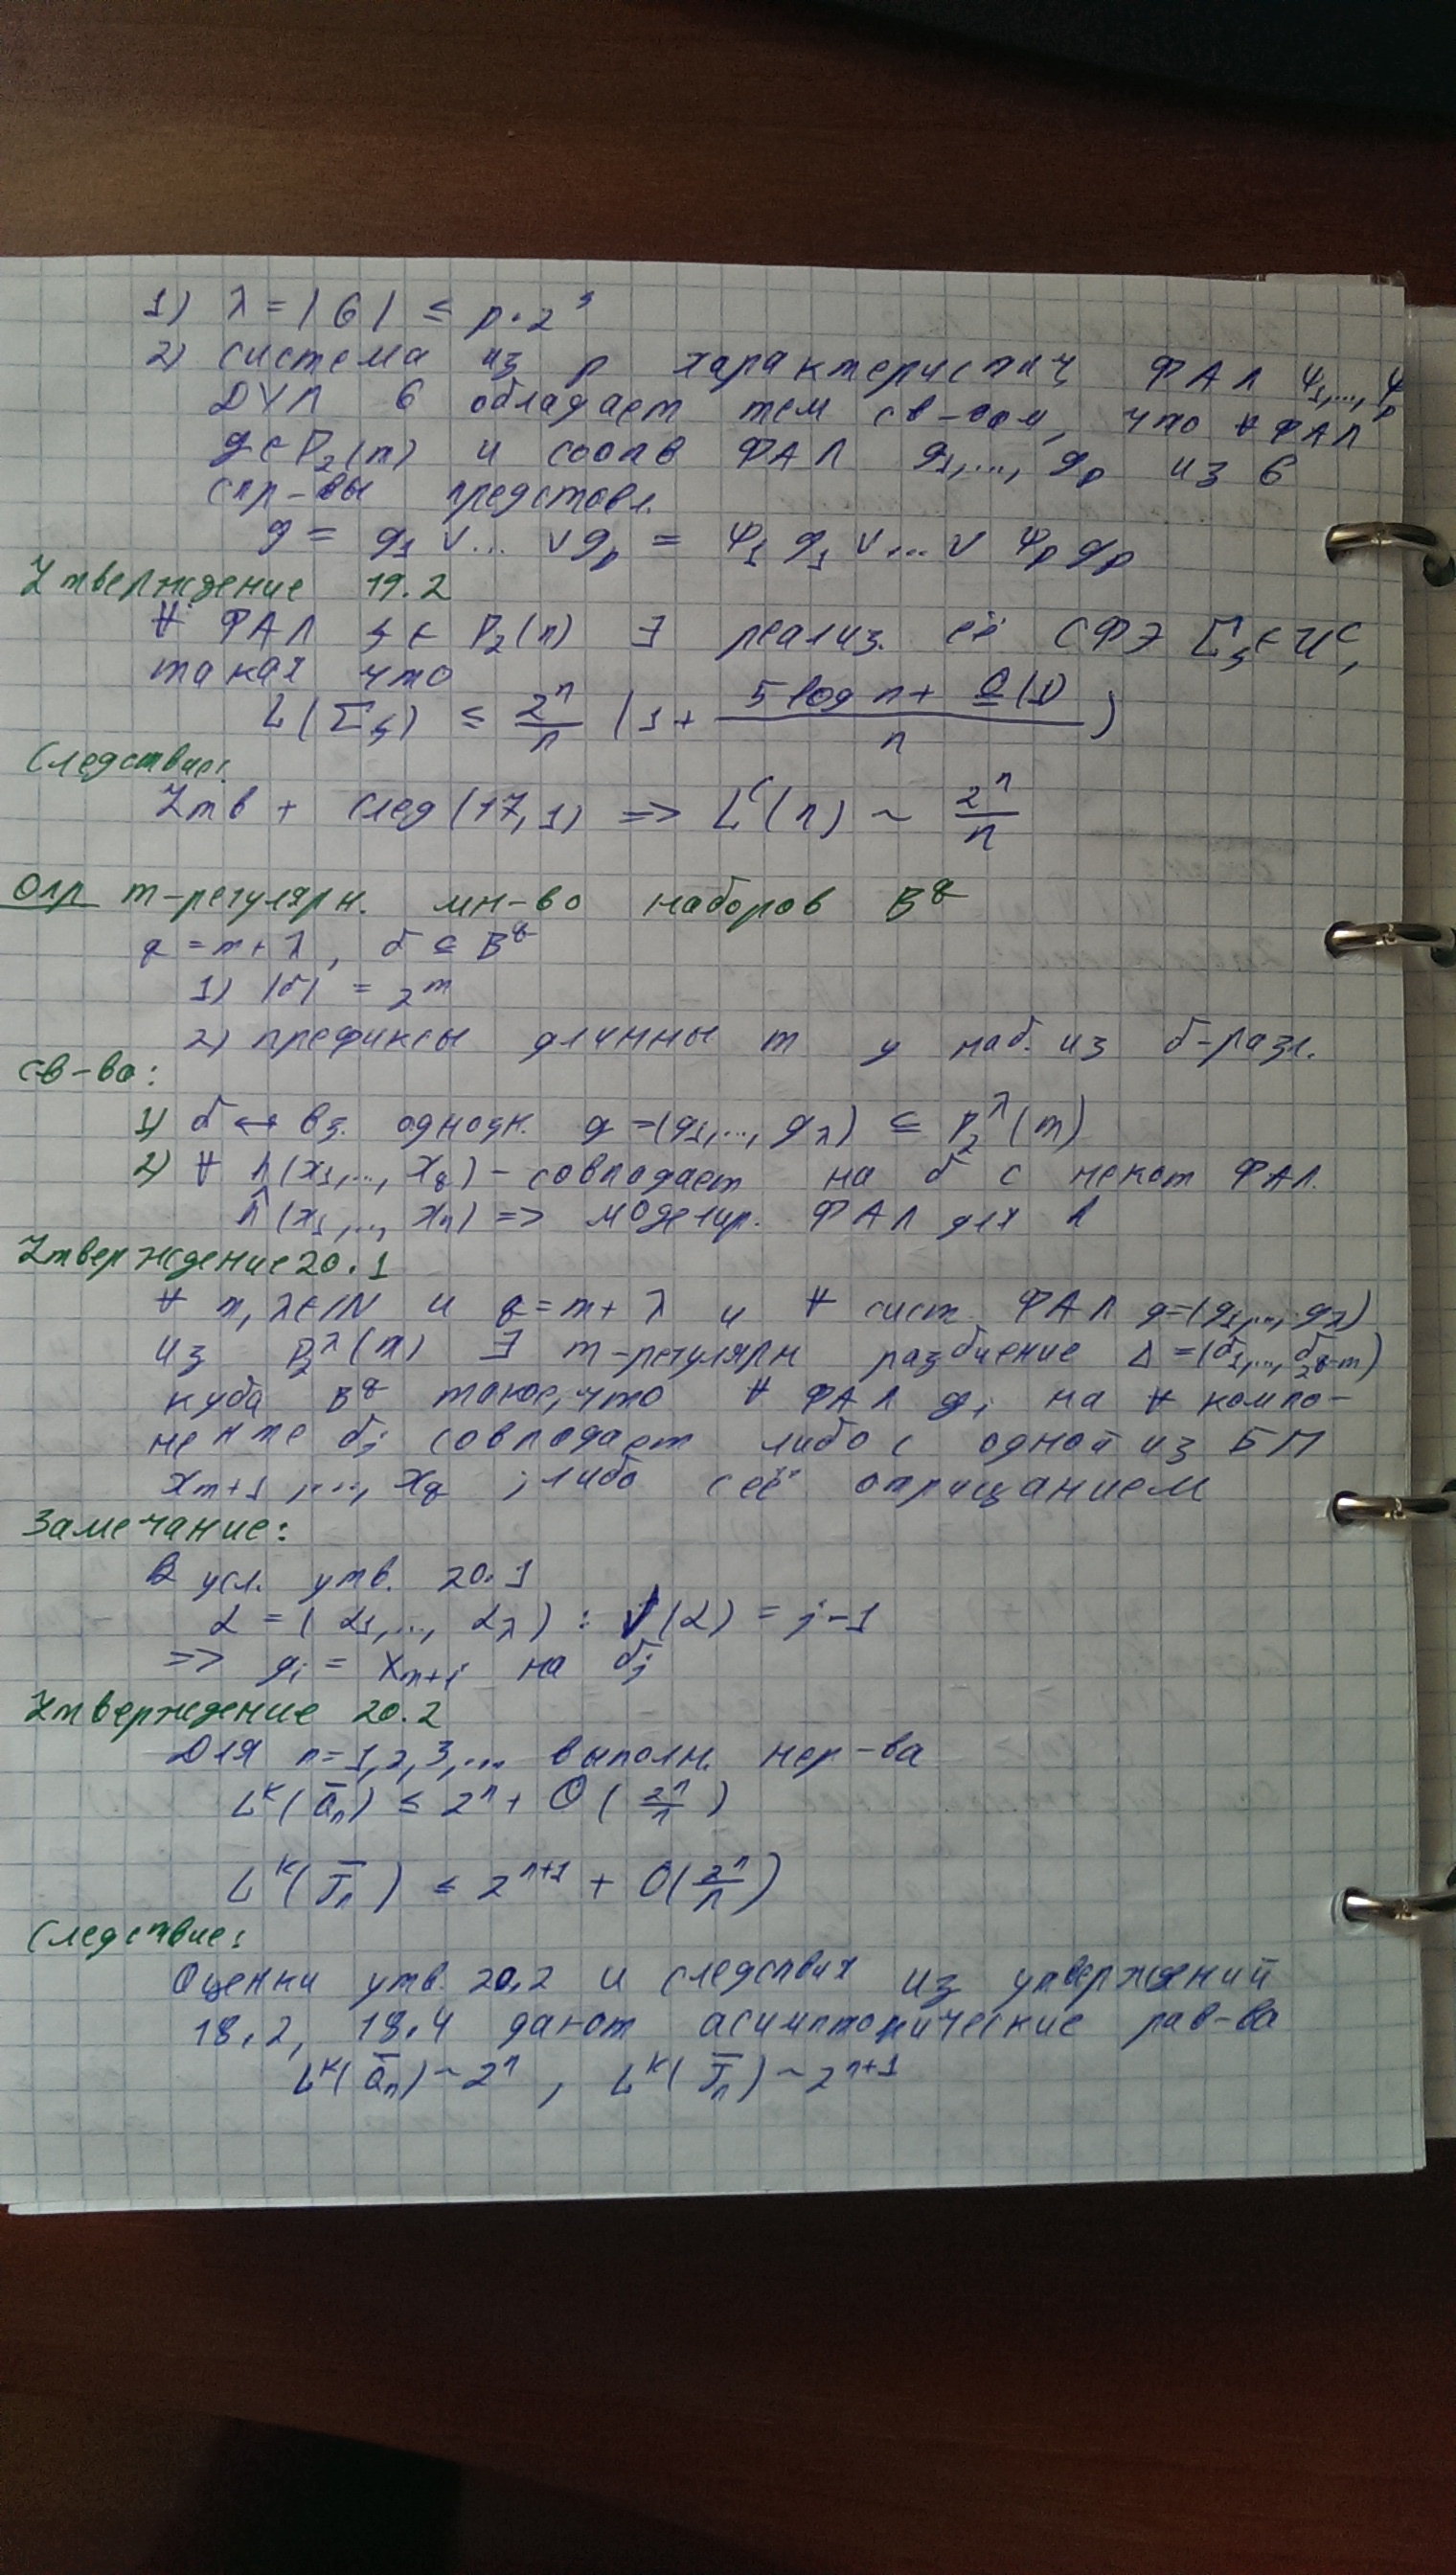 1) λ = |G| ≤ p·2^s
2) система из p характеристич ФАЛ ψ₁,..., ψₚ
для G обладает тем св-вом, что ∀ ФАЛ
g ∈ P₂(m) и соотв ФАЛ g₁,..., gₚ из G
спр-вы представл.
g = g₁ ∨ ... ∨ gₚ = ψ₁ g₁ ∨ ... ∨ ψₚ gₚ
Утверждение 19.2
∀ ФАЛ f ∈ P₂(n) ∃ реализ. её СФЭ Σ_f ∈ U^C,
такая что
L(Σ_f) ≤ 2ⁿ/n (1 + (5 log n + O(1))/n)
Следствие:
Утв + след (17,1) => L^C(n) ~ 2ⁿ/n
Опр m-регулярн. мн-во наборов B^q
q = m + λ, δ ⊆ B^q
1) |δ| = 2^m
2) префиксы длинны m у наб. из δ-разл.
св-во:
1) δ ↔ вз. однозн. g = (g₁,..., g_λ) ⊆ P₂^λ(m)
2) ∀ h(x₁,..., x_q) - совпадает на δ с некот ФАЛ.
ĥ(x₁,..., xₙ) => моделир. ФАЛ для h
Утверждение 20.1
∀ m, λ ∈ ℕ и q = m + λ и ∀ сист. ФАЛ g = (g₁,..., g_λ)
из P₂^λ(m) ∃ m-регулярн разбиение Δ = (δ₁,..., δ_{2^{q-m}})
куба B^q такое, что ∀ ФАЛ g_i на ∀ компо-
ненте δ_j совпадает либо с одной из БП
x_{m+1},..., x_q ; либо с её отрицанием
Замечание:
В усл. утв. 20.1
α = (α₁,..., α_λ) : ν(α) = j-1
=> g_i = x_{m+i} на δ_j
Утверждение 20.2
Для n = 1,2,3,... выполн. нер-ва
L^K(Q̄ₙ) ≤ 2ⁿ + O(2ⁿ/n)
L^K(J̄ₙ) ≤ 2^{n+1} + O(2ⁿ/n)
Следствие:
Оценки утв. 20.2 и следствия из утверждений
18.2, 18.4 дают асимптотические рав-ва
L^K(Q̄ₙ) ~ 2ⁿ, L^K(J̄ₙ) ~ 2^{n+1}